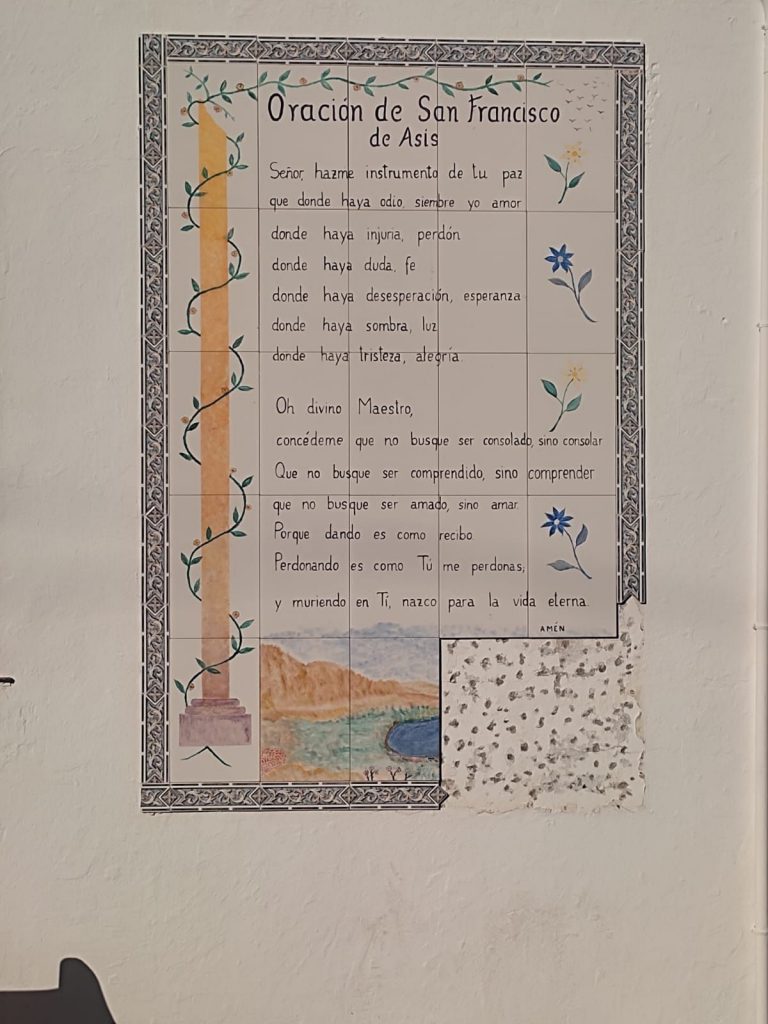 Oración de San Francisco
de Asis
Señor, hazme instrumento de tu paz
que donde haya odio, siembre yo amor
donde haya injuria, perdón
donde haya duda, fe
donde haya desesperación, esperanza
donde haya sombra, luz
donde haya tristeza, alegría
Oh divino Maestro,
concédeme que no busque ser consolado, sino consolar
Que no busque ser comprendido, sino comprender
que no busque ser amado, sino amar.
Porque dando es como recibo.
Perdonando es como Tú me perdonas;
y muriendo en Ti, nazco para la vida eterna.
AMÉN